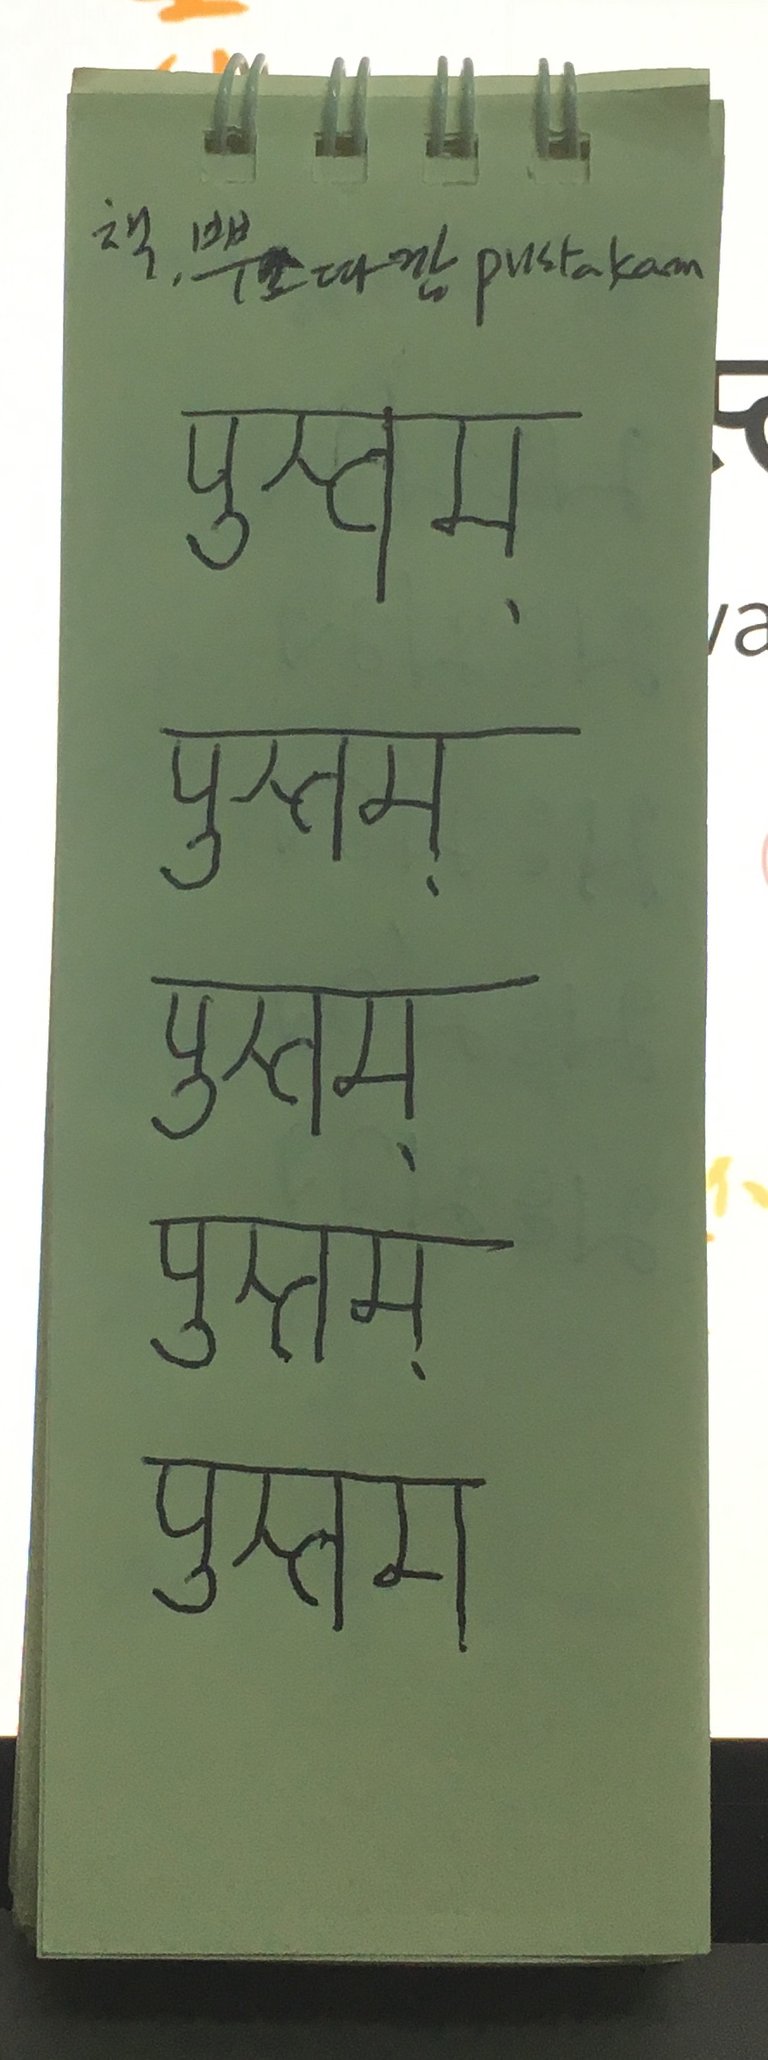 책. 뿌스따깜 pustakam
पुस्तम्
पुस्तम्
पुस्तम्
पुस्तम्
पुस्तम